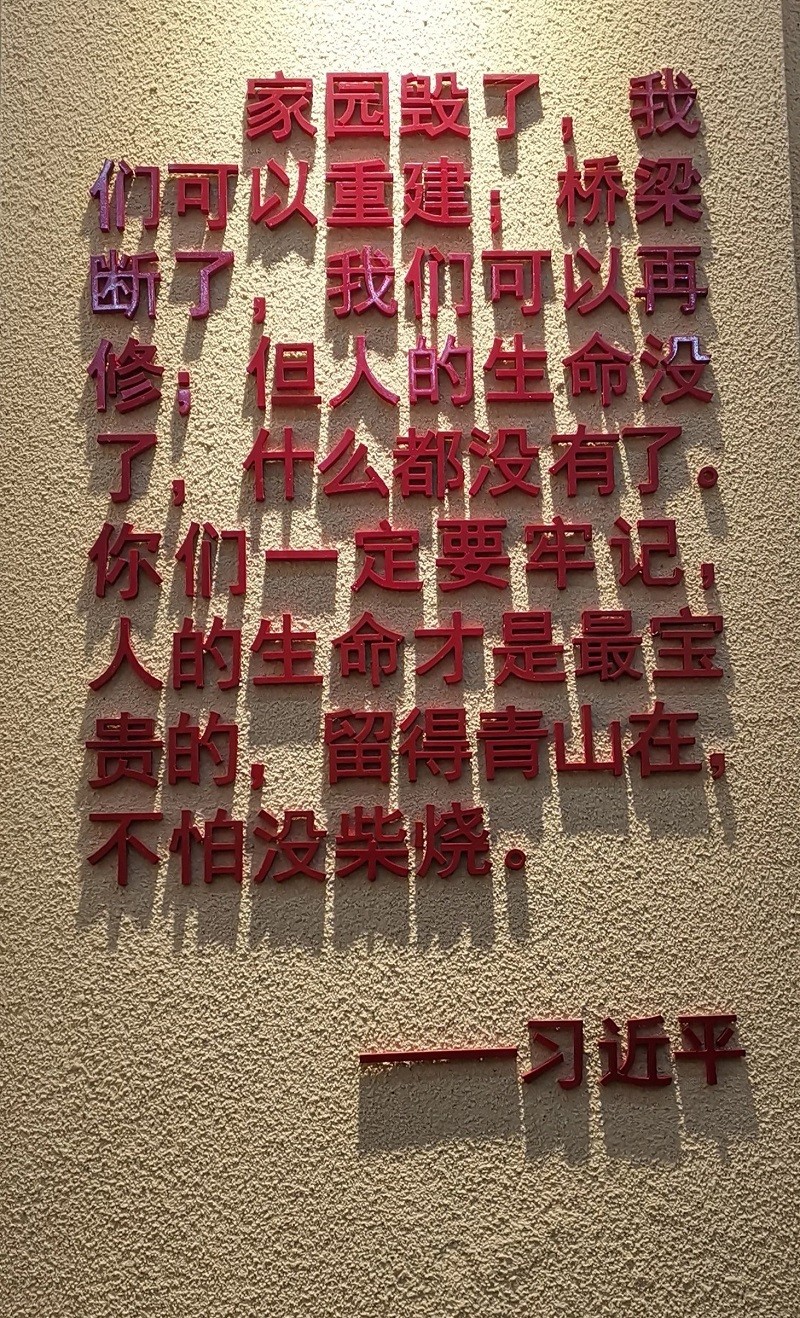 家园毁了，我
们可以重建；桥梁
断了，我们可以再
修；但人的生命没
了，什么都没有了。
你们一定要牢记，
人的生命才是最宝
贵的，留得青山在，
不怕没柴烧。
——习近平